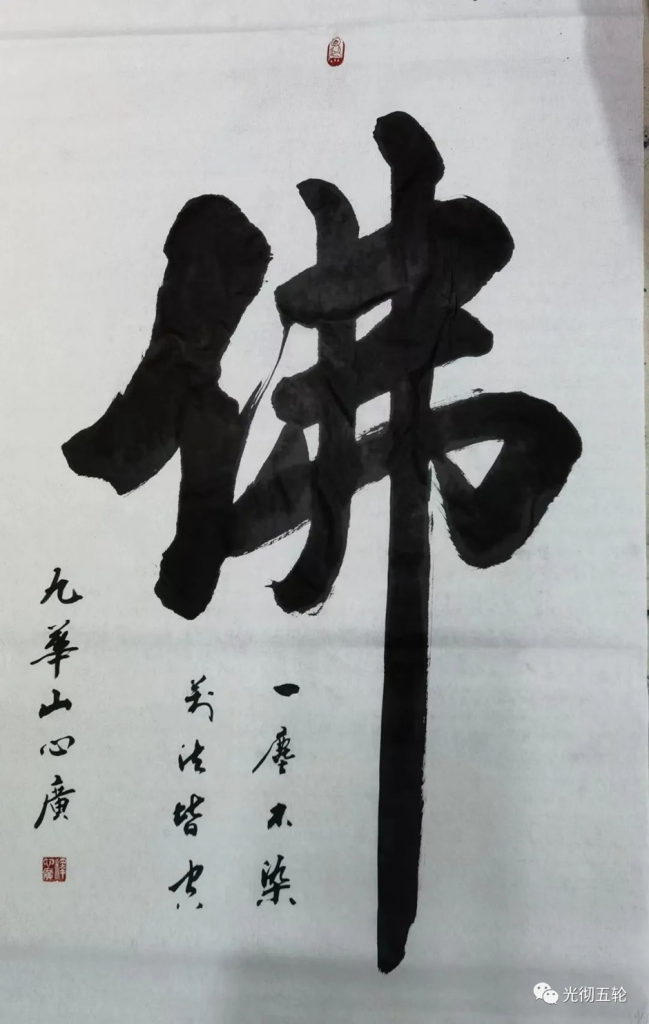 佛
一塵不染
萬法皆空
九華山心廣
光彻五轮